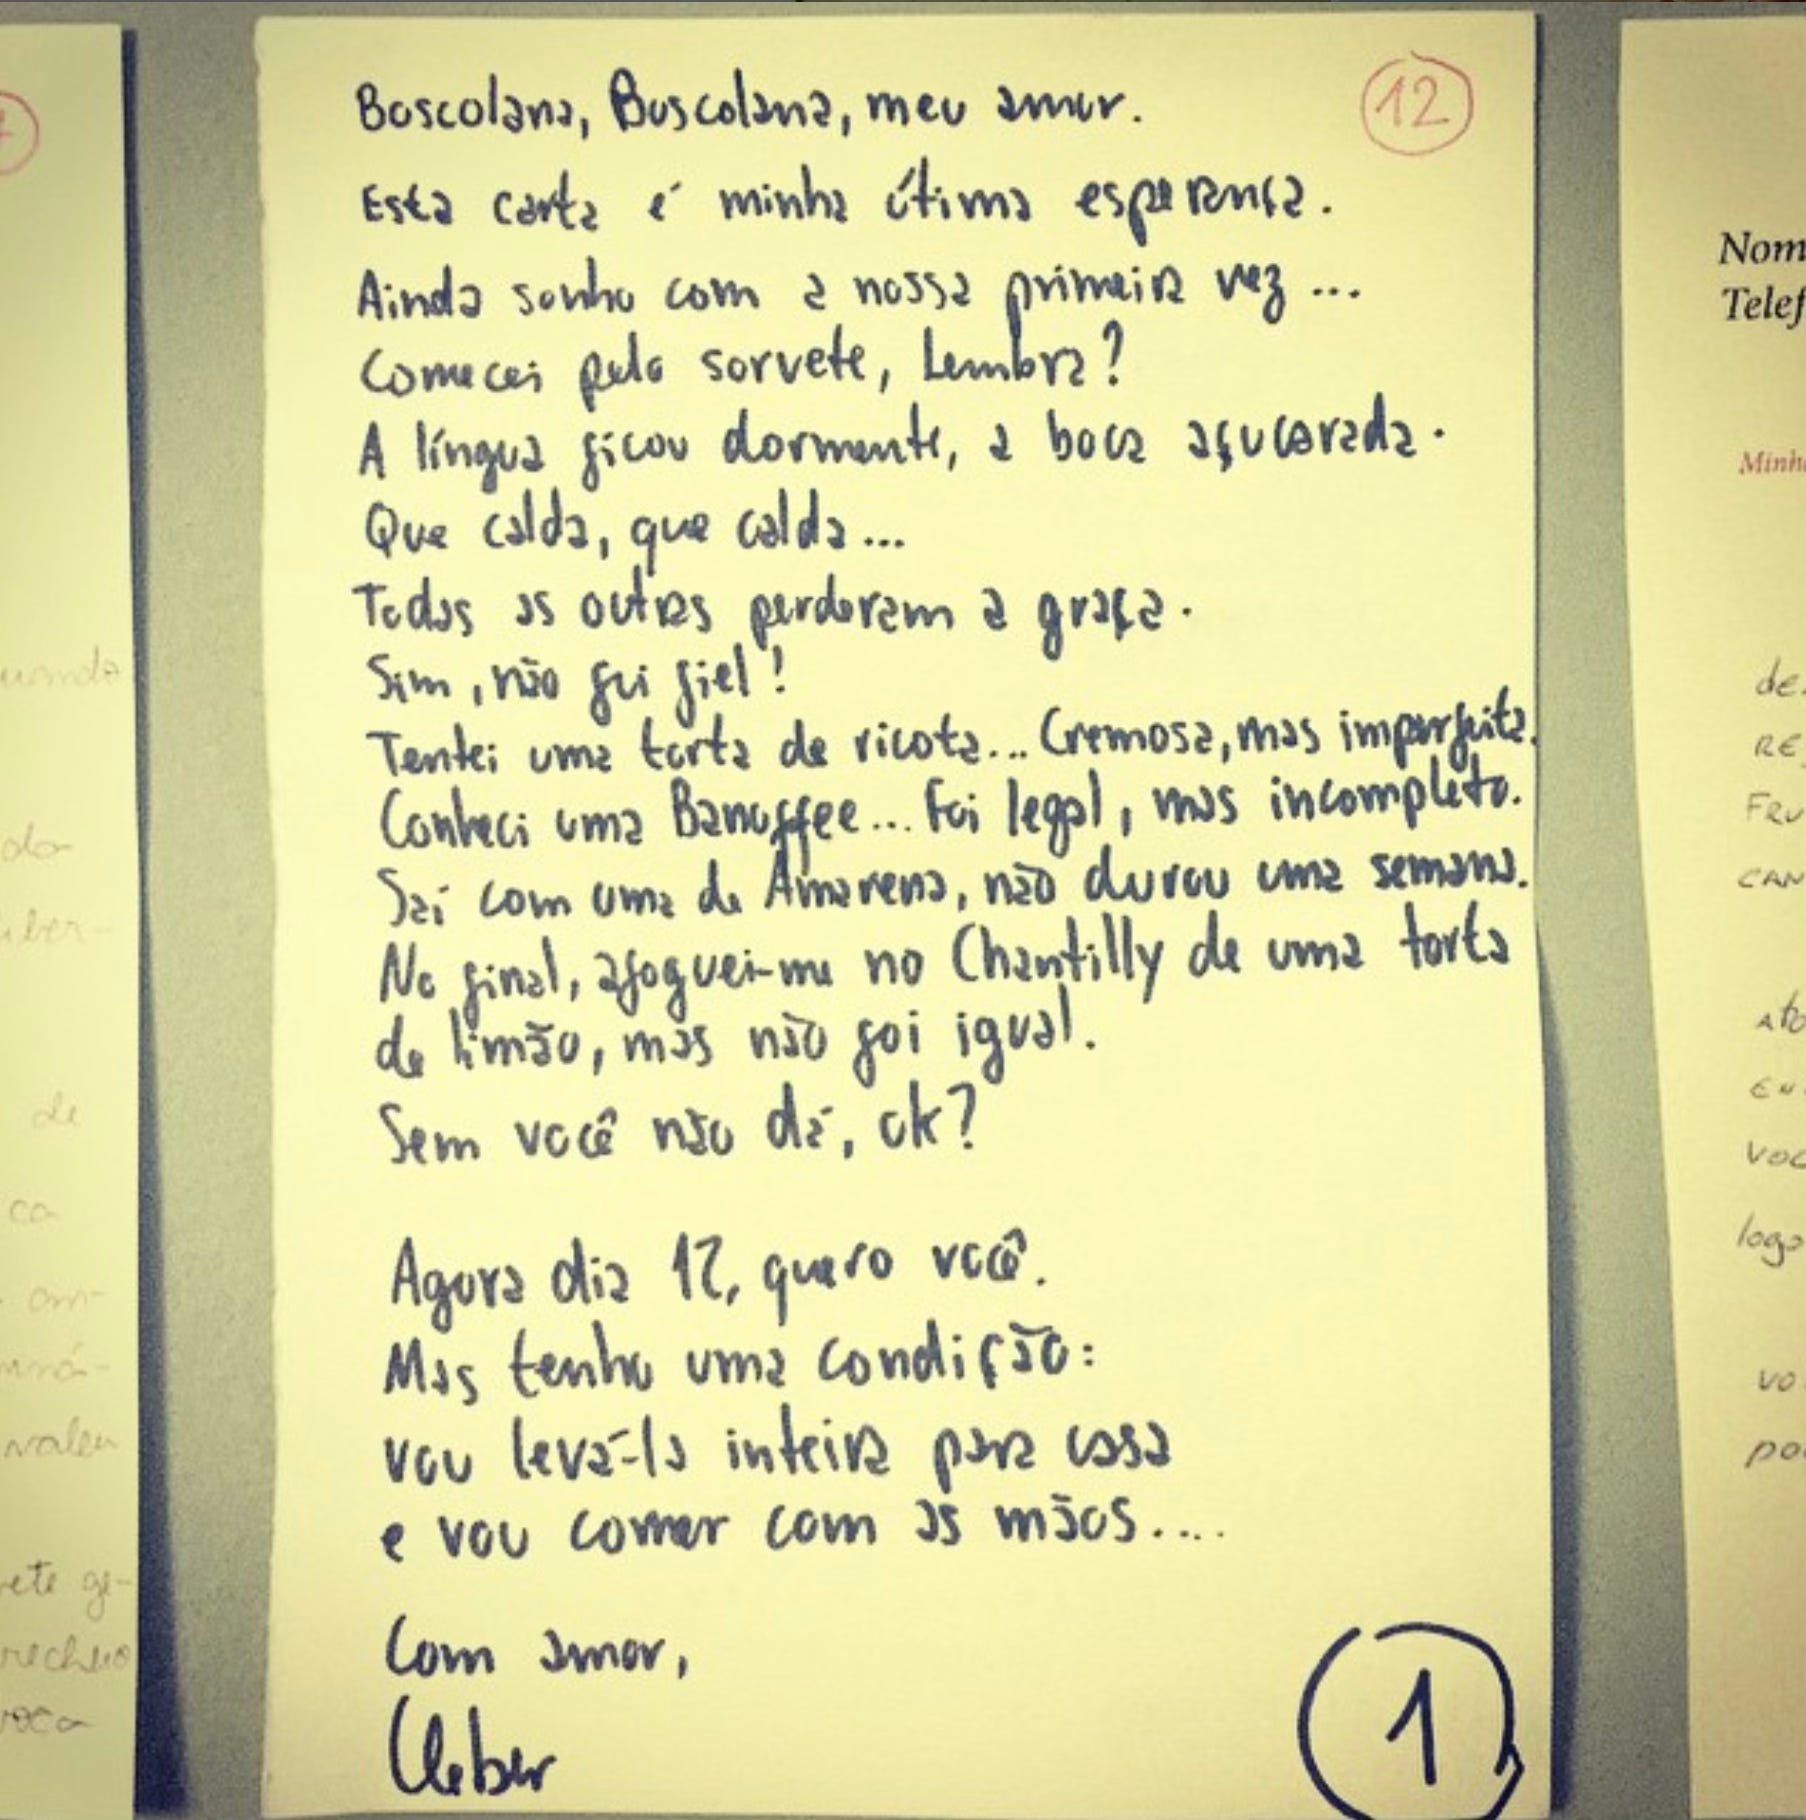 Boscolana, Boscolana, meu amor.
12
Esta carta é minha útima esperança.
Ainda sonho com a nossa primeira vez ...
Comecei pelo sorvete, Lembra?
A língua ficou dormente, a boca açucarada.
Que calda, que calda...
Todas as outras perderam a graça.
Sim, não fui fiel!
Tentei uma torta de ricota... Cremosa, mas imperfeita.
Conheci uma Banoffee... Foi legal, mas incompleto.
Saí com uma de Amarena, não durou uma semana.
No final, afoguei-me no Chantilly de uma torta
de limão, mas não foi igual.
Sem você não dá, ok?
Agora dia 12, quero você.
Mas tenho uma condição:
vou levá-la inteira para casa
e vou comer com as mãos....
Com amor,
Cleber
1
do
de
ca
valeu
Nom
Telef
Minh
de
RE
FRU
CAN
EN
voc
logo
vo
po